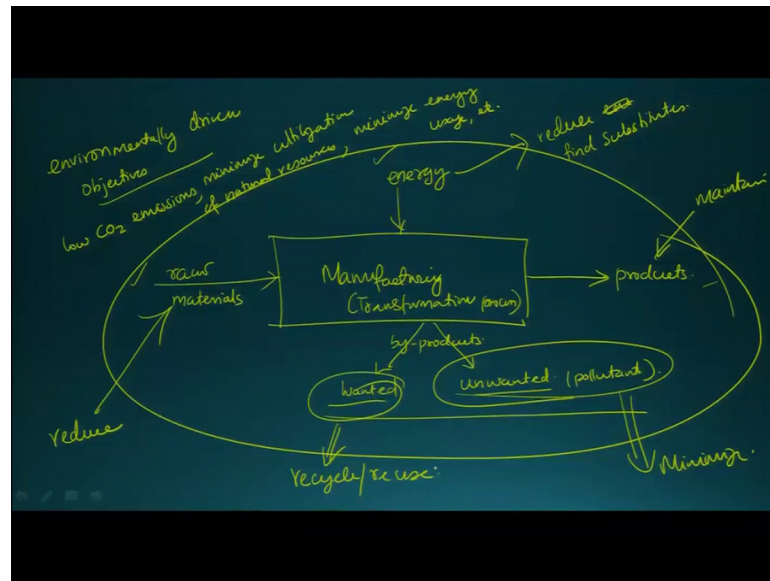 environmentally driven
Objectives
low CO2 emissions, minimize utilization
of natural resources, minimize energy
usage, etc.
reduce
find substitutes.
energy
maintain
raw
materials
Manufacturing
(Transformation process)
products.
by-products.
wanted
unwanted. (pollutant).
reduce
recycle/reuse.
Minimize.